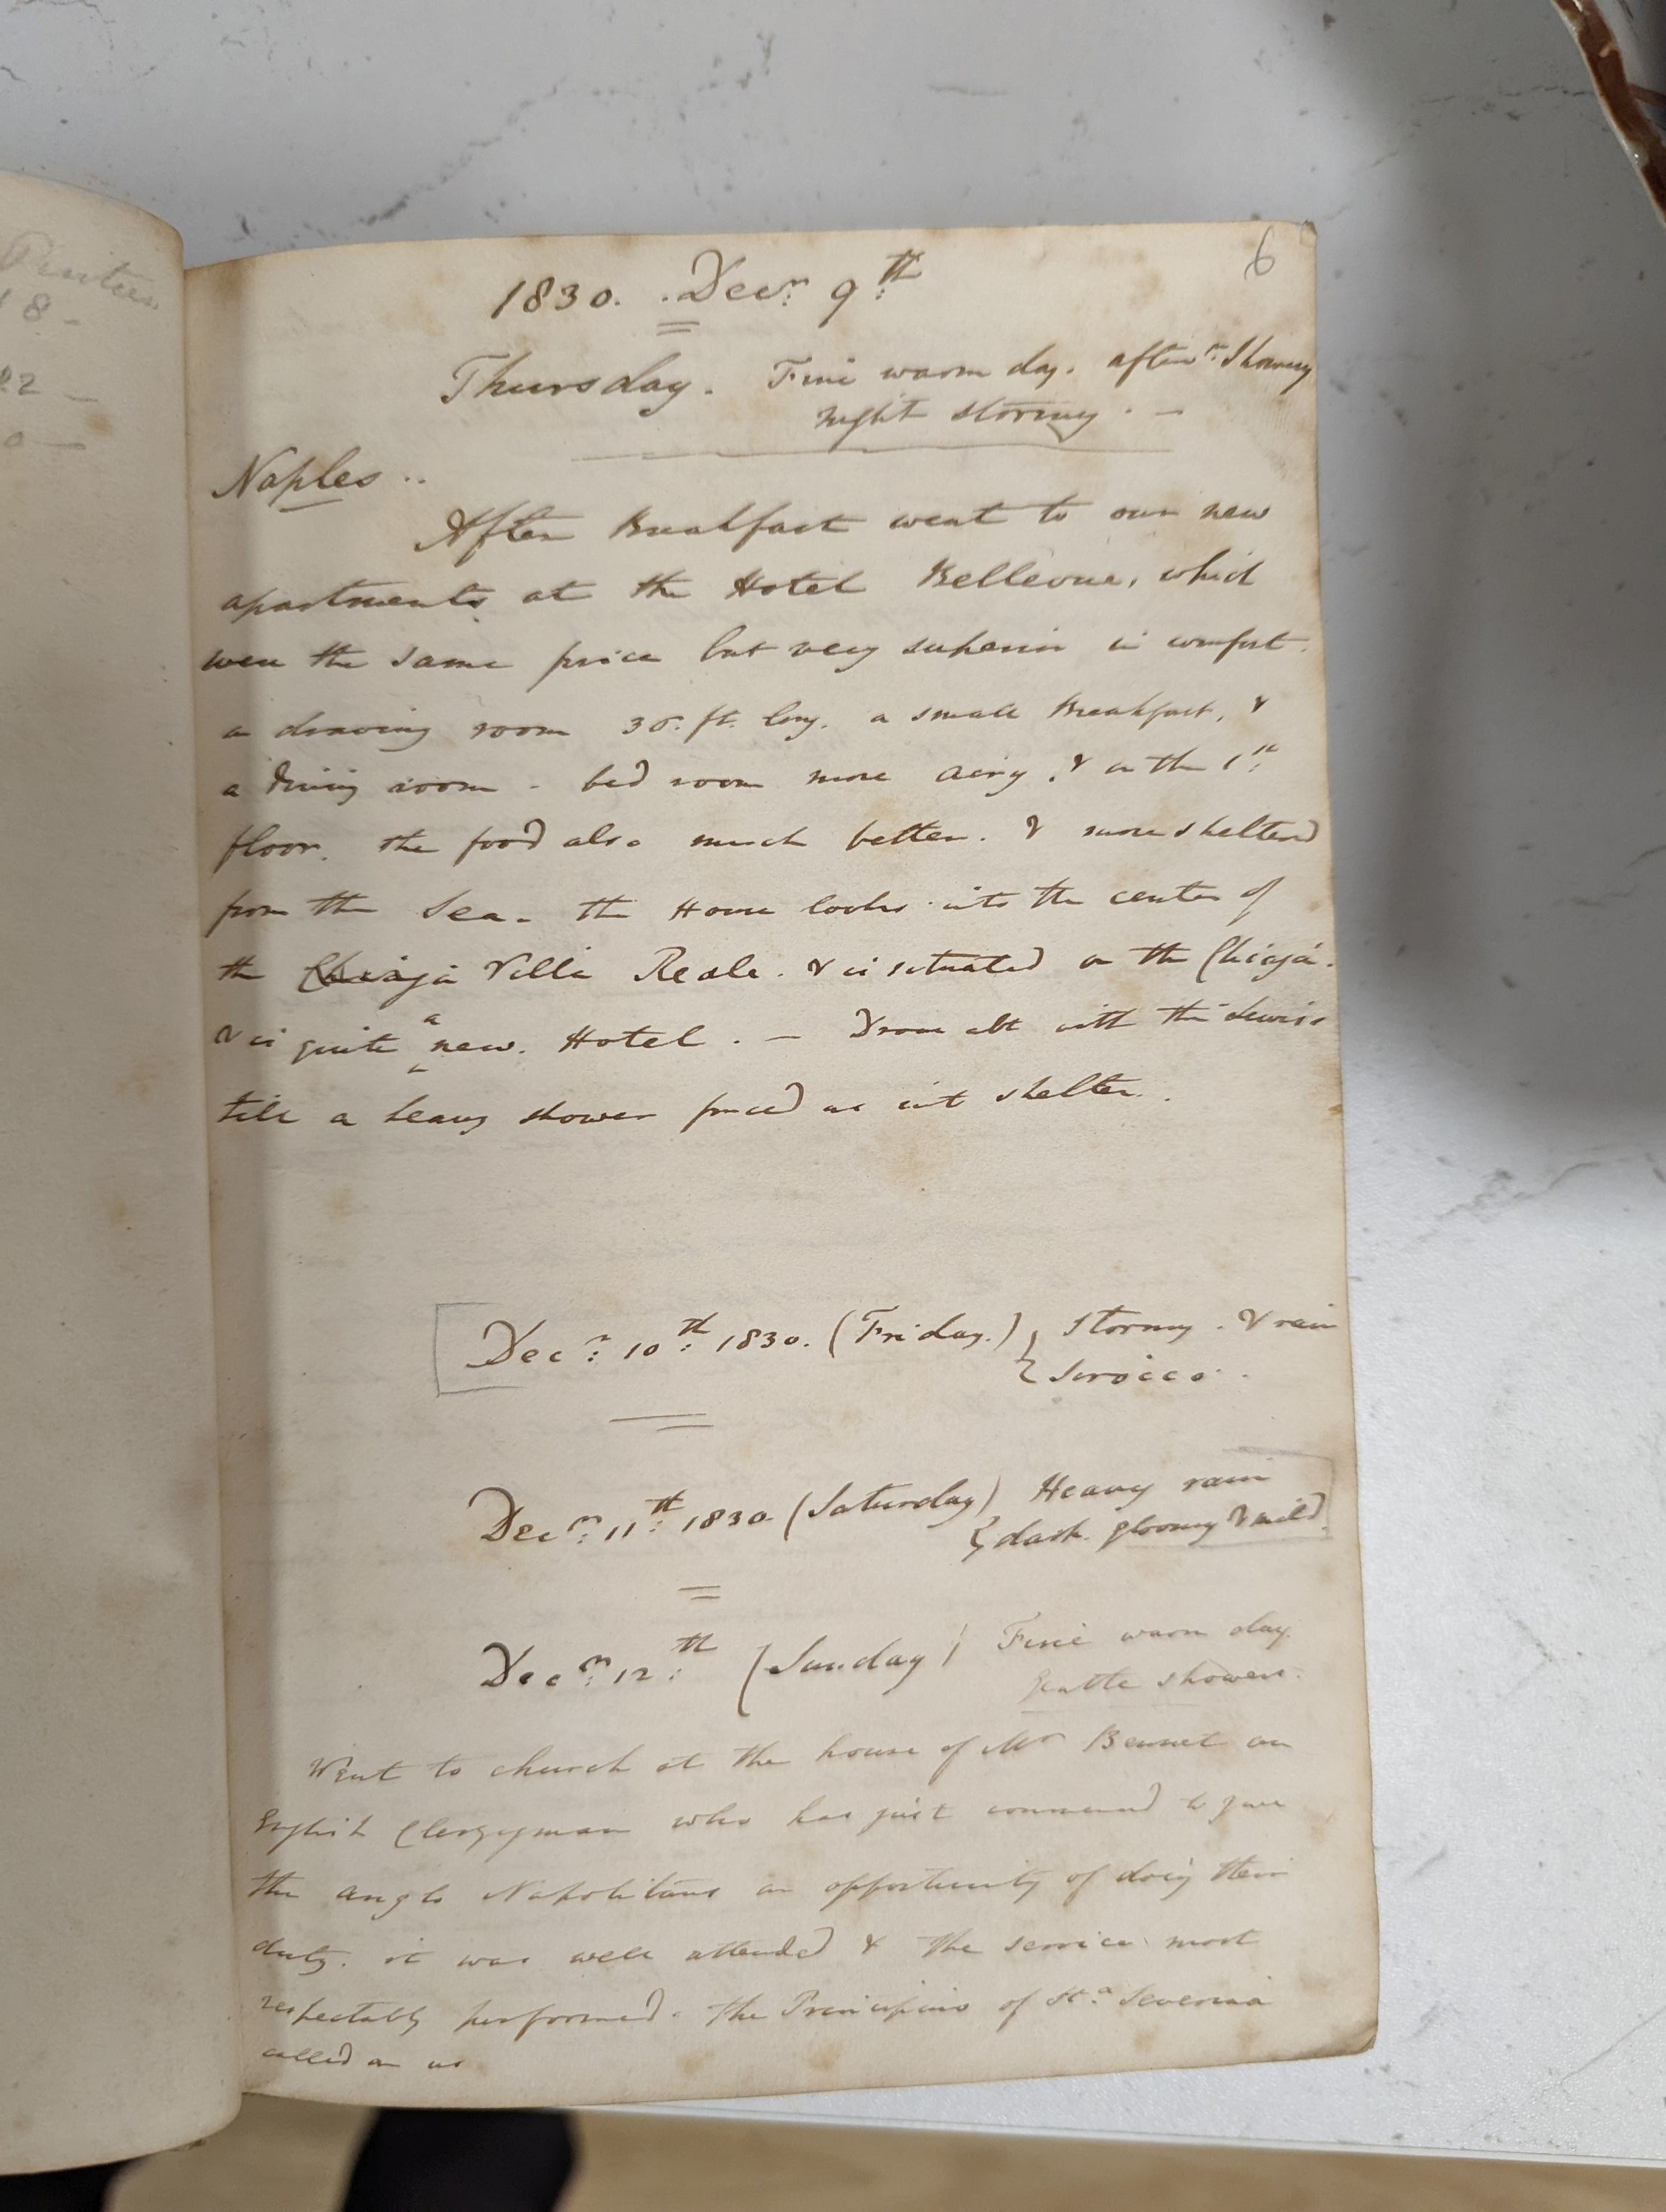 6
1830. Decr. 9th
Thursday. Fine warm day. aftern. Showery
night stormy. -
Naples ..
After Breakfast went to our new
apartments at the Hotel Bellevue, which
were the same price but very superior in comfort.
a drawing room 30. ft. long. a small Breakfast, &
a dining room - bed room more airy. & on the 1st
floor. the food also much better. & more sheltered
from the Sea - the House looks into the center of
the Chiaja Villa Reale. & is situated on the Chiaja.
& is quite a new. Hotel. - Drove abt with the
till a heavy shower forced us into shelter.
Decr. 10th 1830. (Friday.) Stormy. & rain
Sirocco.
Decr. 11th 1830 (Saturday) Heavy rain
dark. gloomy & mild.
Decr. 12th (Sunday) Fine warm day.
Gentle showers.
Went to church at the house of Mr Bennet an
English Clergyman who has just commenced to give
the Anglo Napolitans an opportunity of doing their
duty. it was well attended & the service most
respectably performed. the of Sta. Severina
called on us
18-
22 -
0 -